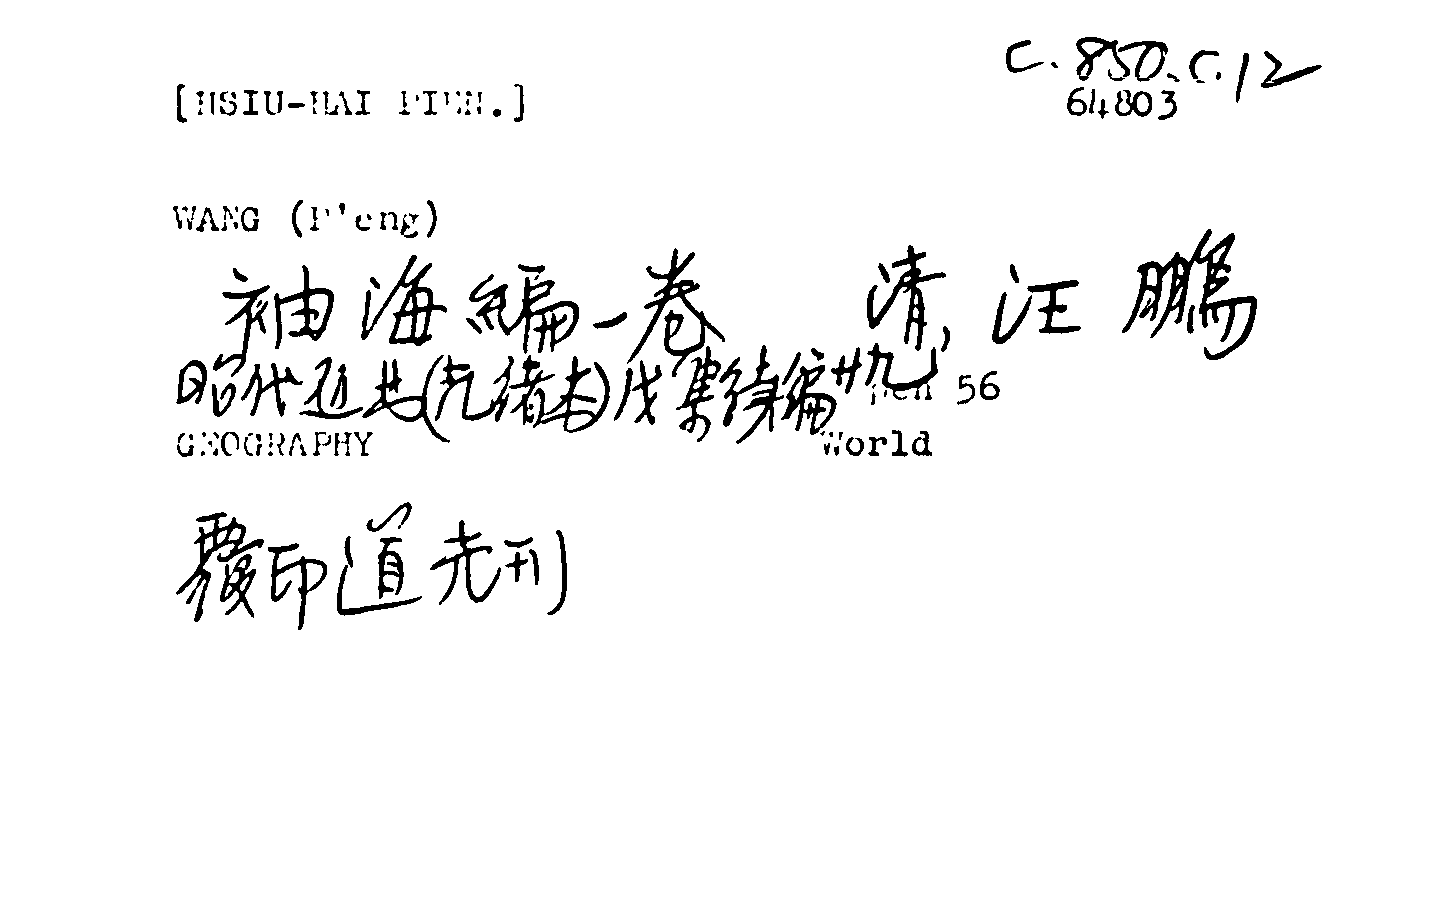 C.850.C.12
[HSIU-HAI PIEN.]
64803
WANG (P'eng)
袖海編一卷 清,汪鵬
昭代叢書(光緒本)戊集續編廿九 pen 56
GEOGRAPHY World
覆印道光刊